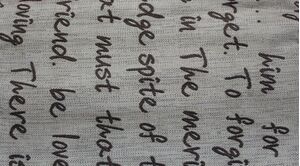 him for
rget. To forgi
in The meri
dge spite of t
t must that
riend. be love
oving There is